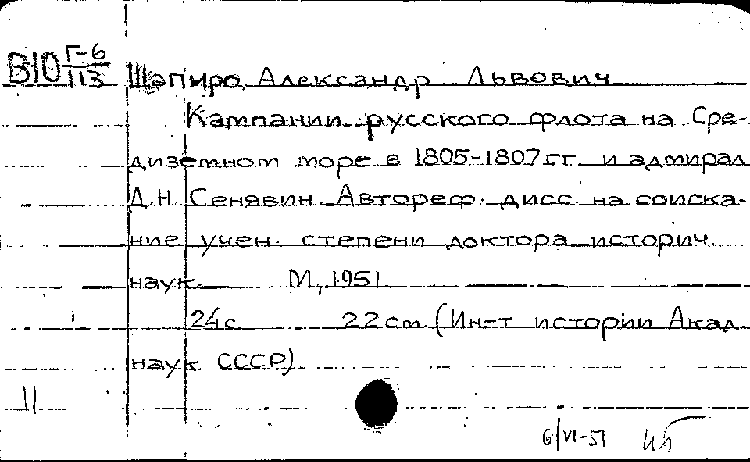 В10 Г-6/113 Шапиро, Александр Львович
Кампании русского флота на Сре-
диземном море в 1805-1807 гг. и адмирал
Д.Н. Сенявин. Автореф. дисс на соиска-
ние учен. степени доктора историч.
наук. М., 1951
24с 22 см (Ин-т истории Акад
наук СССР)
11
6/VI-51